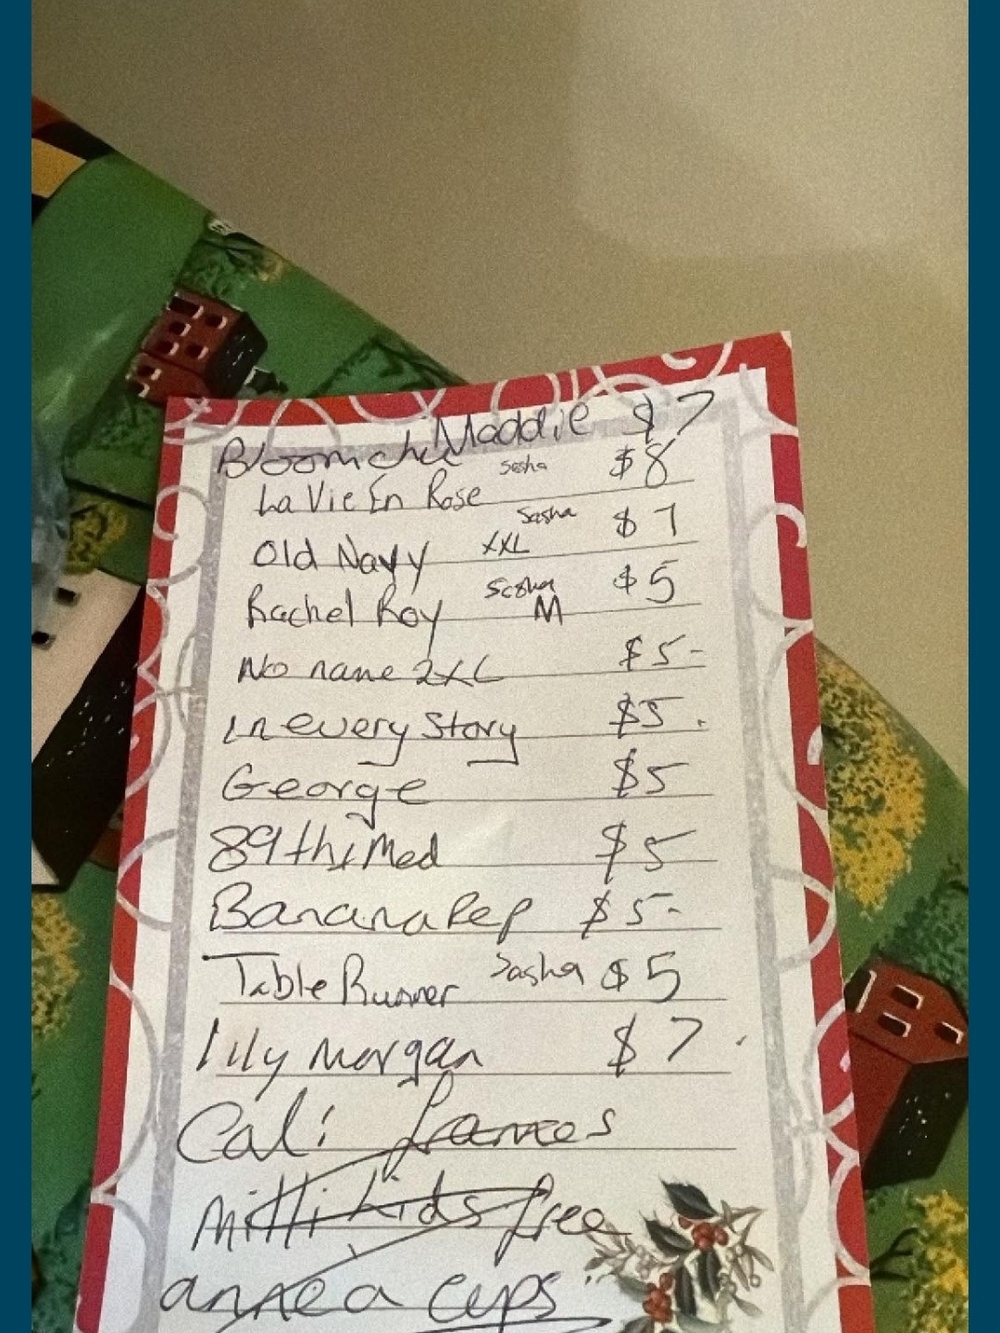 Maddie $7
Bloomchic
Sasha $8
La Vie En Rose
Sasha $7
Old Navy XXL
Sasha $5
Rachel Roy M
No name 2XL $5-
In every Story $5.
George $5
89th Med $5
Banana Rep $5-
Table Runner Sasha $5
lily morgan $7
Cali frames
mitti kids free
cups